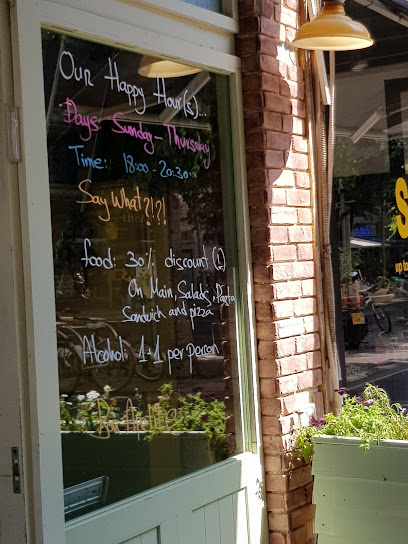 Our Happy Hour(s)...
Days: Sunday - Thursday
Time: 18:00 - 20:30
Say What?!?!
food: 30% discount (!)
On Main, Salads, Pasta
Sandwich and pizza
Alcohol: 1+1 per person
Bon Appetite
S
up to